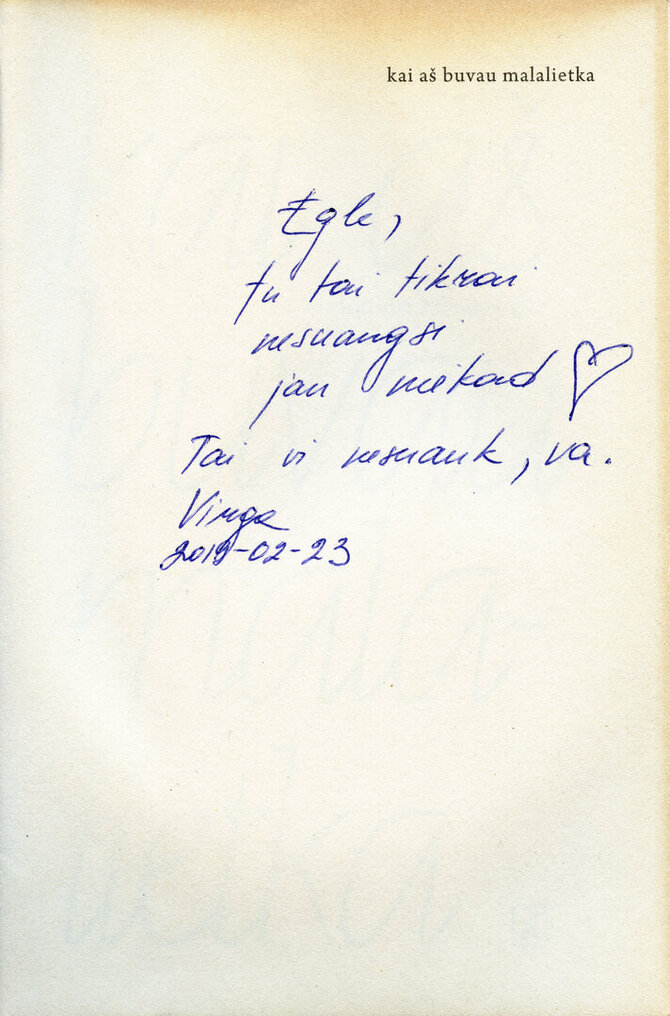 kai aš buvau malalietka
Egle,
tu tai tikrai
nesuaugsi
jau niekad ♡
Tai ir nesuauk, va.
Virga
2019-02-23